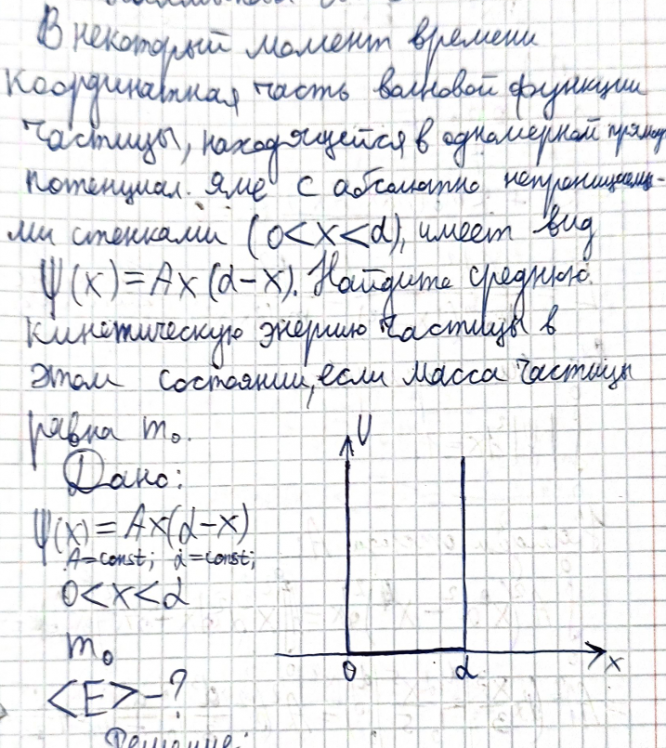 В некоторый момент времени
координатная часть волновой функции
частицы, находящейся в одномерной прямоу
потенциал. яме с абсолютно непроницаемы-
ми стенками (0<x<d), имеет вид
Ψ(x)=Ax(d-x). Найдите среднюю
кинетическую энергию частицы в
этом состоянии, если масса частицы
равна m₀.
Дано:
Ψ(x)=Ax(d-x)
A=const; d=const;
0<x<d
m₀
<E>-?
U
0 d x
Решение: